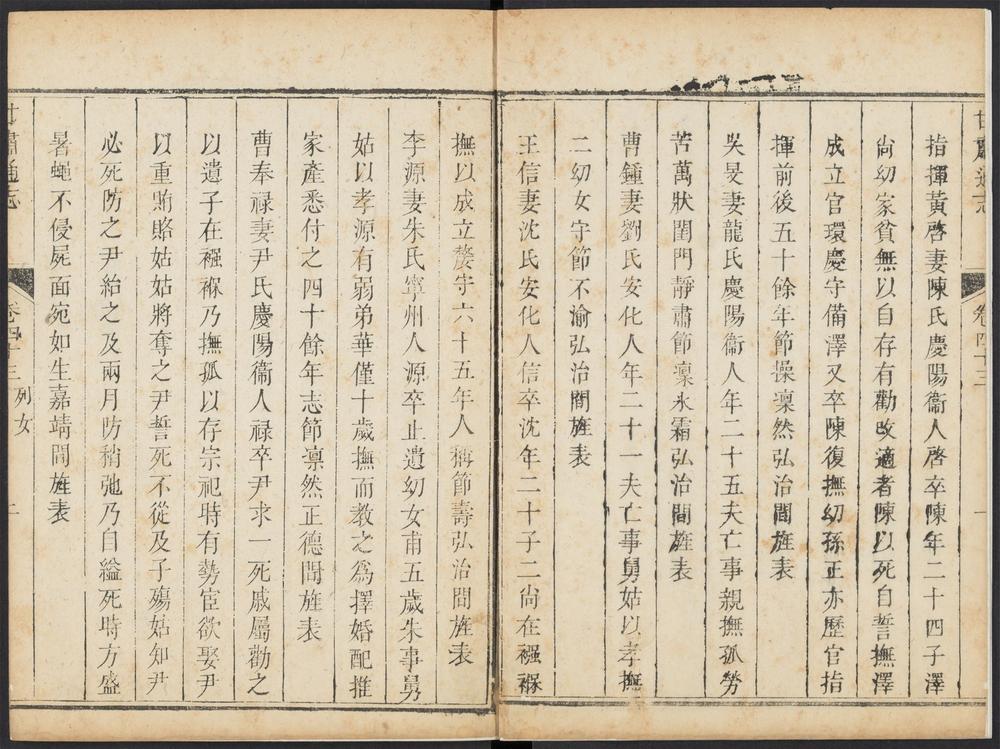 甘肅通志
卷四十三
一
指揮黃啓妻陳氏慶陽衞人啓卒陳年二十四子澤
尙幼家貧無以自存有勸改適者陳以死自誓撫澤
成立官環慶守備澤又卒陳復撫幼孫正亦歷官指
揮前後五十餘年節操凜然弘治間旌表
吳旻妻龍氏慶陽衞人年二十五夫亡事親撫孤勞
苦萬狀閨門靜肅節凜氷霜弘治間旌表
曹鍾妻劉氏安化人年二十一夫亡事舅姑以孝撫
二幼女守節不渝弘治間旌表
王信妻沈氏安化人信卒沈年二十子二尙在襁褓
撫以成立嫠守六十五年人稱節壽弘治間旌表
李源妻朱氏寧州人源卒止遺幼女甫五歲朱事舅
姑以孝源有弱弟華僅十歲撫而教之爲擇婚配推
家產悉付之四十餘年志節凜然正德間旌表
曹奉祿妻尹氏慶陽衞人祿卒尹求一死戚屬勸之
以遺子在襁褓乃撫孤以存宗祀時有勢宦欲娶尹
以重賄賂姑姑將奪之尹誓死不從及子殤姑知尹
必死防之尹紿之及兩月防稍弛乃自縊死時方盛
暑蠅不侵屍面宛如生嘉靖間旌表
甘肅通志
卷四十三
列女
二